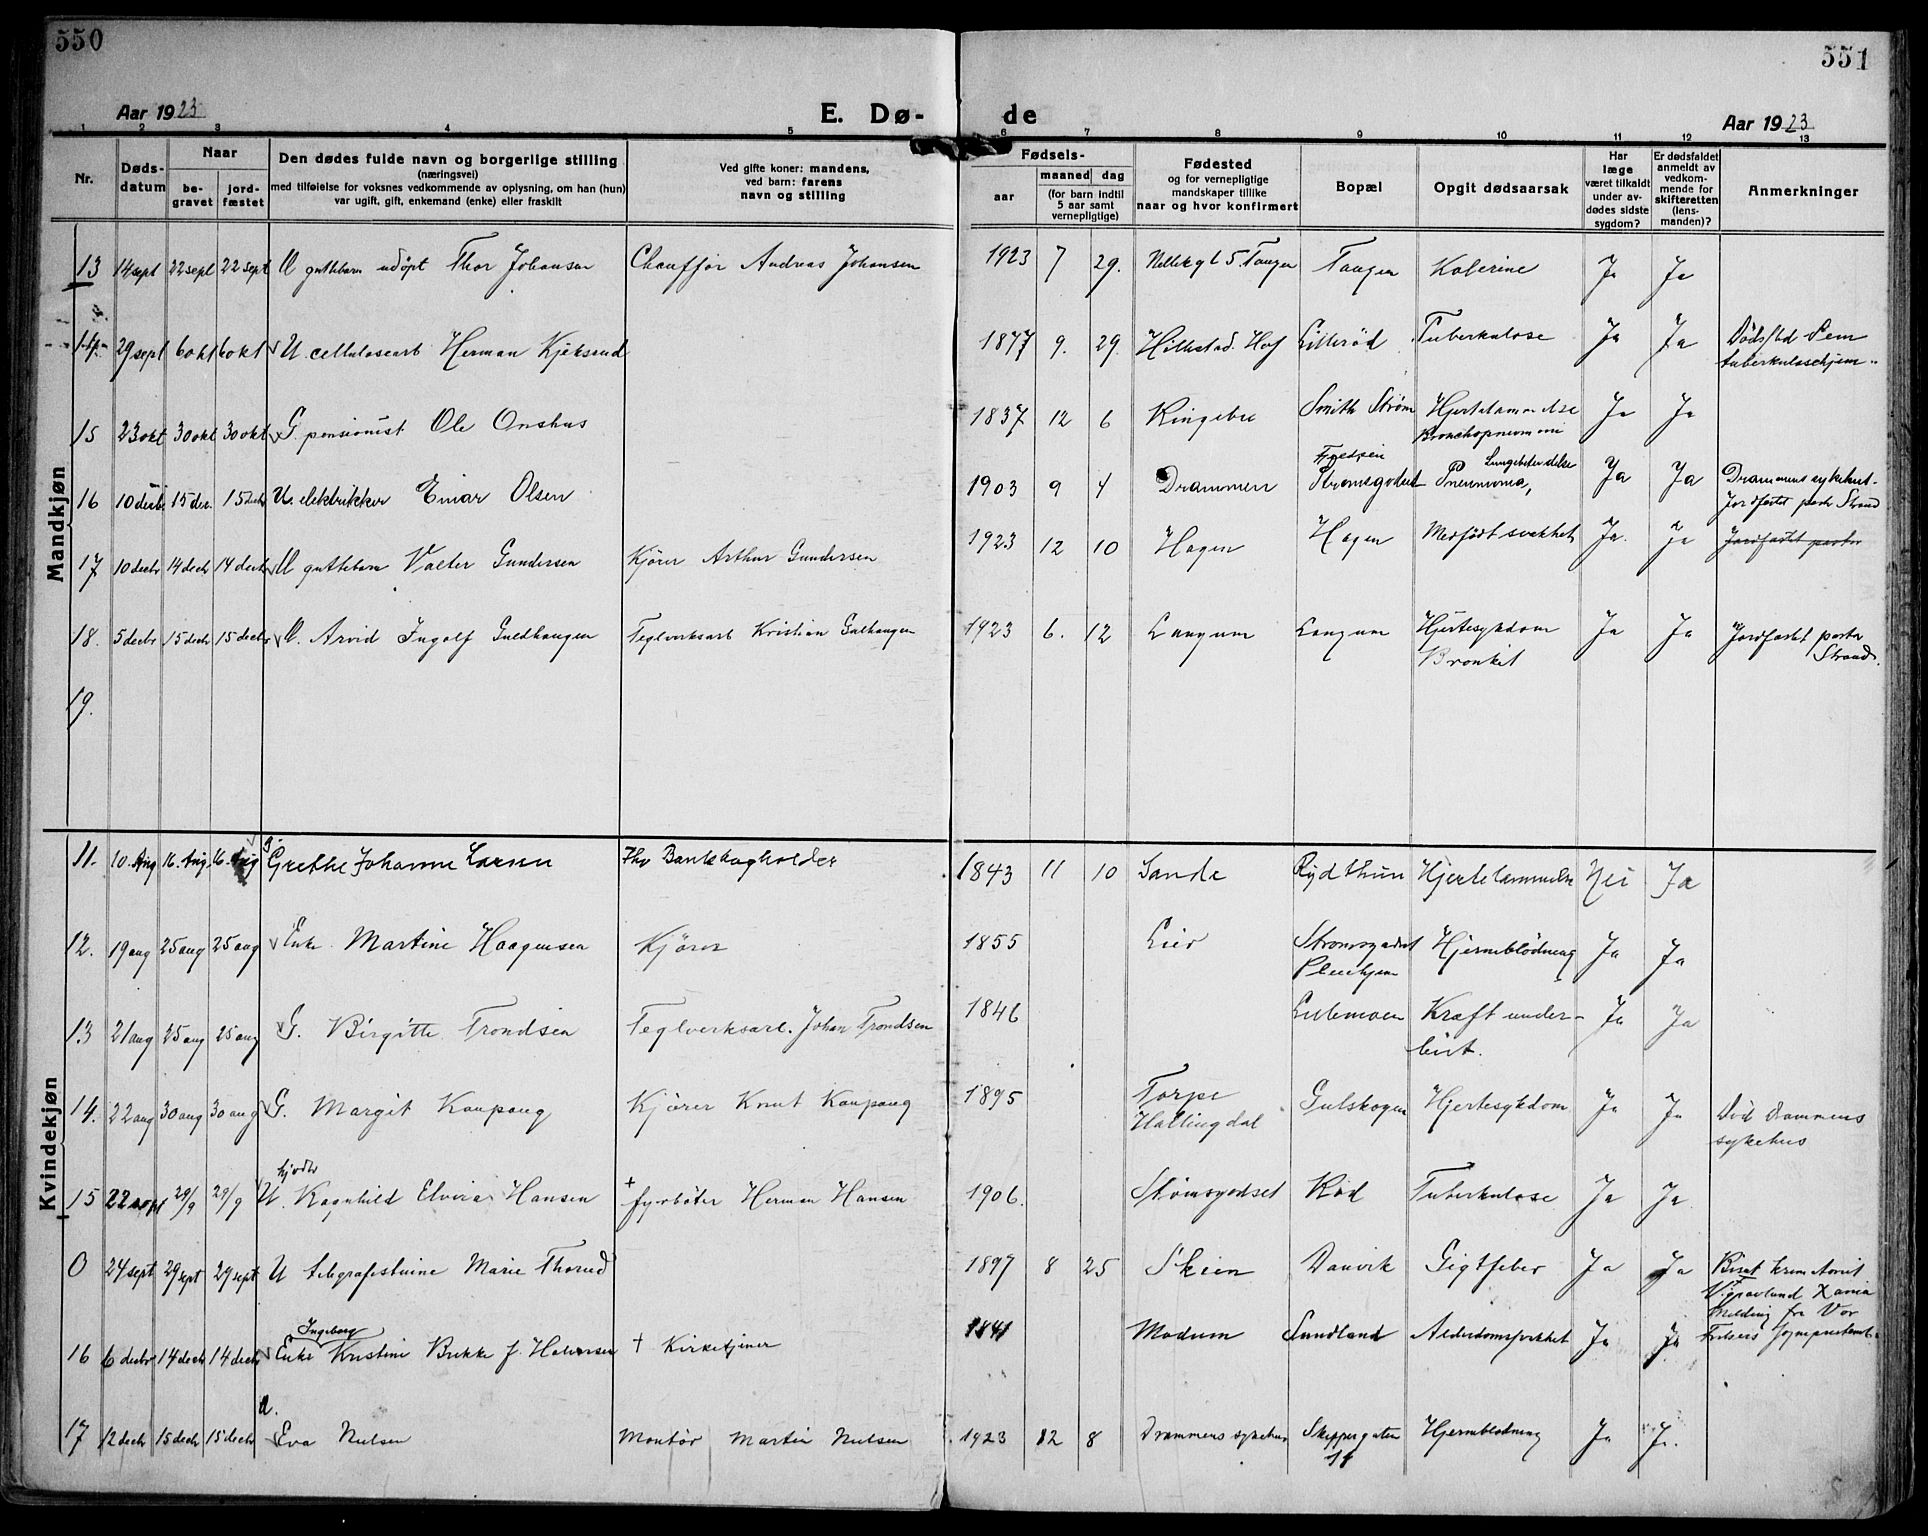 550
551
Aar 1923
E. Dø-
de
Aar 1923
1 2 3 4 5 6 7 8 9 10 11 12 13
Nr.
Døds-
datum
Naar
be-
gravet
jord-
fæstet
Den dødes fulde navn og borgerlige stilling
(næringsvei)
med tilføielse for voksnes vedkommende av oplysning, om han (hun)
var ugift, gift, enkemand (enke) eller fraskilt
Ved gifte koner: mandens,
ved barn: farens
navn og stilling
Fødsels-
aar
maaned dag
(for barn indtil
5 aar samt
vernepligtige)
Fødested
og for vernepligtige
mandskaper tillike
naar og hvor konfirmert
Bopæl
Opgit dødsaarsak
Har
læge
været tilkaldt
under av-
dødes sidste
sygdom?
Er dødsfaldet
anmeldt av
vedkom-
mende for
skifteretten
(lens-
manden)?
Anmerkninger
Mandkjøn
13 14 sept 22 sept 22 sept U guttebarn udöpt Thor Johansen Chauffør Andreas Johansen 1923 7 29. Tangen Tangen Kolerine Ja Ja
14 29 sept 6 okt 6 okt U cellulosearb Herman Kjeksrud 1877 9. 29. Hillestad. Hof Lillerød Tuberkulose Ja Ja Dödsted Sem
tuberkulosehjem
15 23 okt 30 okt 30 okt G. pensionist Ole Onshus 1837 12 6 Ringebu Smith Strøm Hjertelammelse Ja Ja
Bronchopneumoni
16 10 decbr 15 dec. 15 decbr U. elektrikker Einar Olsen 1903 9 4 Drammen Strømsgodset Pneumonia, Lungebetendelse Ja Ja Drammens sykehus
Jordfæstet pastor Strand
17 10 decbr 14 decbr 14 decbr U guttebarn Valter Gundersen Kjører Arthur Gundersen 1923 12 10 Hagen Hagen Medfødt svakhet Ja. Ja Jordfæstet pastor
18. 5 decbr 15 decbr 15 decbr U. Arvid Ingolf Guldhaugen Teglverksarb Kristian Gulhaugen 1923 6. 12 Langum Langum Hjertesykdom Ja Ja Jordfæstet pastor
Bronkit Strand.
19.
Kvindekjøn
11. 10. Aug 16. Aug. 16. Aug G Grethe Johanne Larsen Bankbogholder 1843 11 10 Sande Rydthun Hjertelammelse Nei Ja
12. 19 aug 25 aug 25 aug Enke Martine Haagensen Kjører 1855 Lier Strømsgodset Hjerneblödning Ja Ja
Pleiehjem
13 21 aug 25 aug 25 aug G. Birgitte Trondsen Teglverksarb. Johan Trondsen 1846 Lulemoen Kraft under- Ja Ja
livet.
14. 22 aug 30 aug 30 aug G. Margit Kaupang Kjører Knut Kaupang 1895 Torpe Gulskogen Hjertesykdom Ja Ja Död Dammens
Hallingdal sykehus
15 22 sept 29/9 29/9 U. Ragnhild Elvira Hansen + fyrböter Herman Hansen 1906. Strømsgodset Rød Tuberkulose Ja Ja
0 24 sept 29 sept 29 sept U telegrafistinne Marie Thorud 1897 8 25 Skien Danvik Gigtfeber Ja Ja
Melding fra Vor
Frelsers Sogneprestemb.
16 6 decbr 14 decbr 14 decbr Enke Ingeborg Kristine Bakke f. Halvorsen + Kirketjener 1841 Modum Sundland Alderdomssvakhet Ja Ja
17 12 decbr 15 decbr 15 decbr U. Eva Nilsen Montør Martin Nilsen 1923 12 8 Drammens sykehus Skippergaten Hjerneblødning Ja Ja.
11